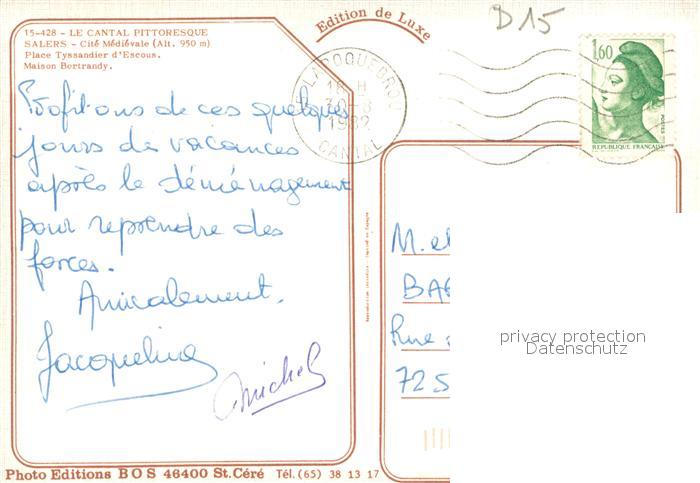 15-428 - LE CANTAL PITTORESQUE
SALERS - Cité Médiévale (Alt. 950 m)
Place Tyssandier d'Escous.
Maison Bertrandy.
Edition de Luxe
D15
LAROQUEBROU
18 H
30-8
1982
CANTAL
1,60
POSTES
REPUBLIQUE FRANCAISE
Profitons de ces quelques
jours de vacances
après le déménagement
pour reprendre des
forces.
Amicalement.
Jacqueline
Michel
M. et
BA
Rue
725
privacy protection
Datenschutz
Photo Editions BOS 46400 St. Céré Tél. (65) 38 13 17